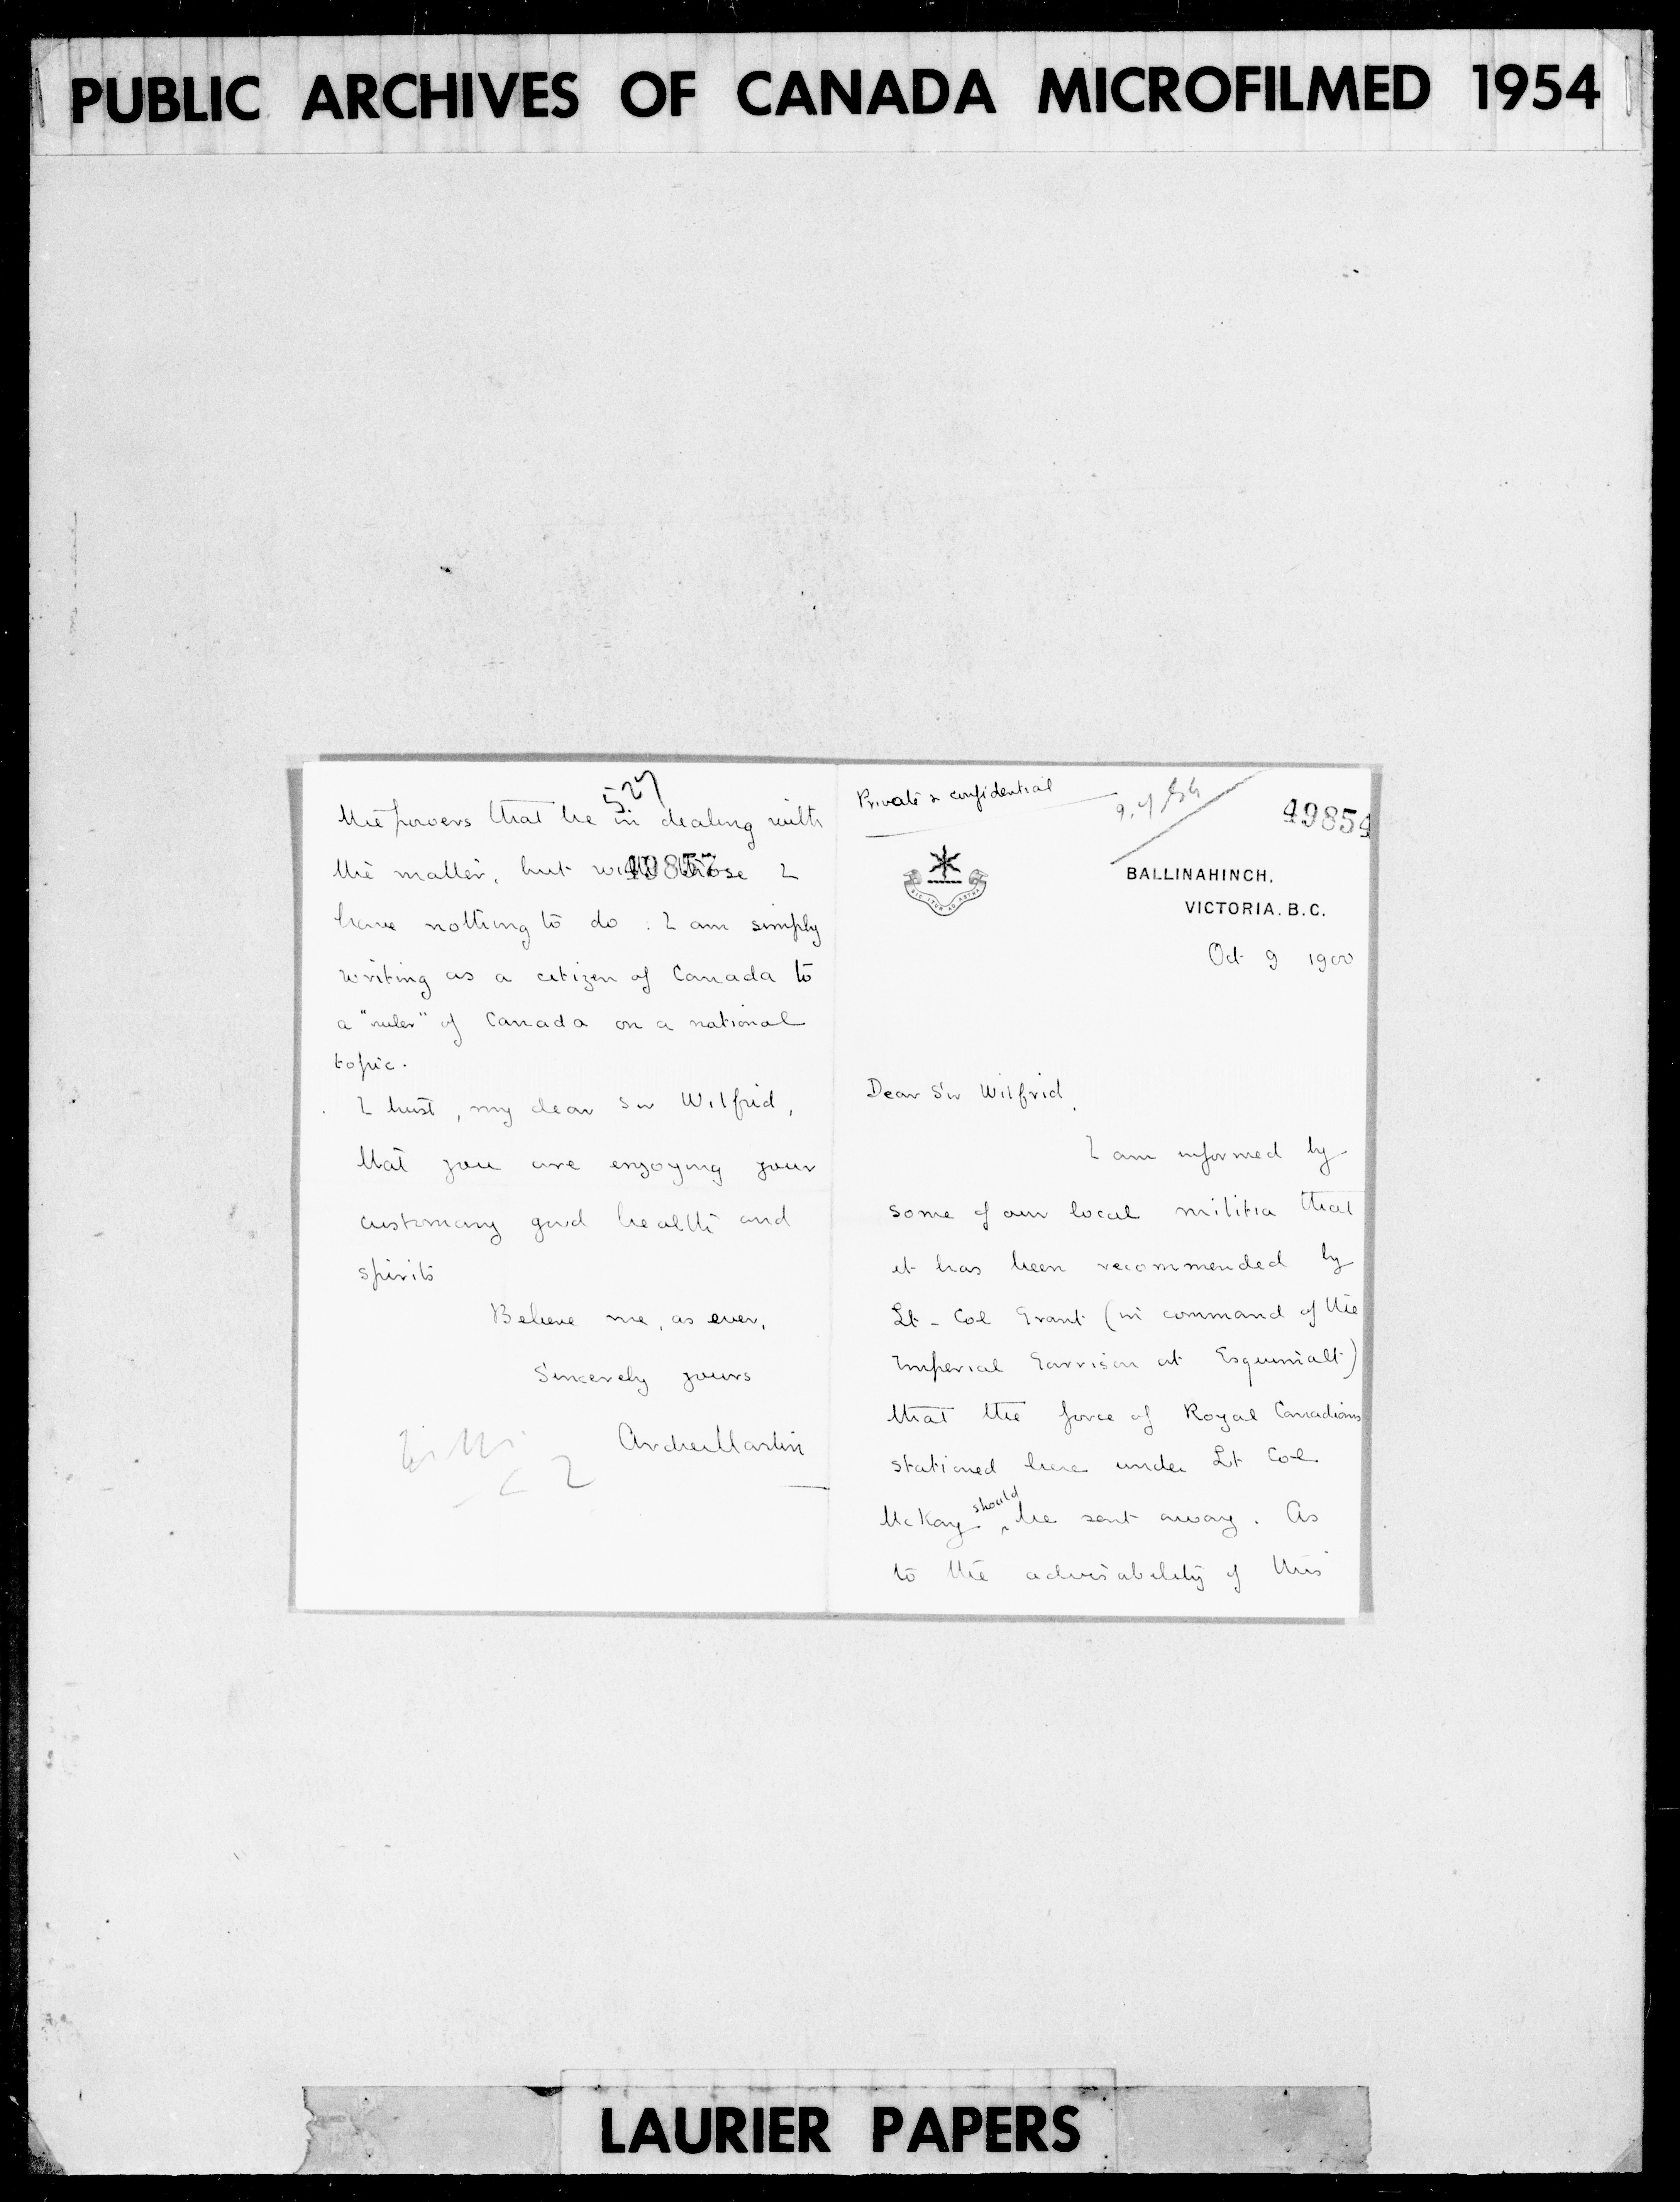 PUBLIC ARCHIVES OF CANADA MICROFILMED 1954
527
the powers that be in dealing with
the matter, but with those I
49857
have nothing to do : I am simply
writing as a citizen of Canada to
a "ruler" of Canada on a national
topic.
I trust, my dear Sir Wilfrid,
that you are enjoying your
customary good health and
spirits
Believe me, as ever,
Sincerely yours
Archer Martin
Private & confidential
49854
SIC ITUR AD ASTRA
BALLINAHINCH,
VICTORIA. B.C.
Oct 9 1900
Dear Sir Wilfrid,
I am informed by
some of our local militia that
it has been recommended by
Lt-Col Grant (in command of the
Imperial Garrison at Esquimalt)
that the force of Royal Canadians
stationed here under Lt Col
McKay should be sent away. As
to the advisability of this
LAURIER PAPERS